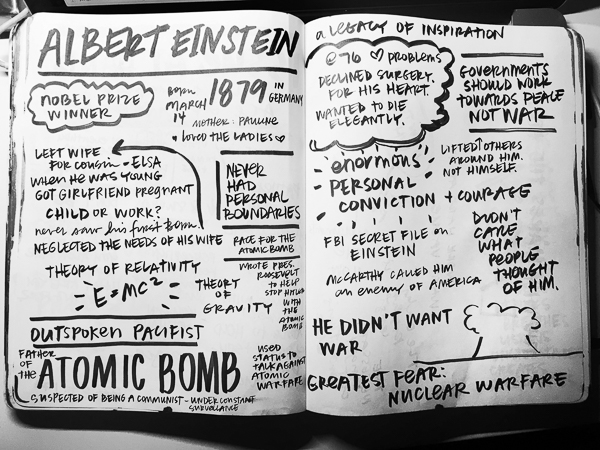 ALBERT EINSTEIN
NOBEL PRIZE
WINNER
BORN
MARCH
14
1879
IN
GERMANY
MOTHER: PAULINE
• LOVED THE LADIES ♡
LEFT WIFE
FOR COUSIN - ELSA
WHEN HE WAS YOUNG
GOT GIRLFRIEND PREGNANT
CHILD OR WORK?
never saw his first born.
NEGLECTED THE NEEDS OF HIS WIFE
NEVER
HAD
PERSONAL
BOUNDARIES
RACE FOR THE
ATOMIC BOMB
THEORY OF RELATIVITY
E=MC²
THEORY
OF
GRAVITY
WROTE PRES.
ROOSEVELT
TO HELP
STOP HITLER
WITH
THE
ATOMIC
BOMB
OUTSPOKEN PACIFIST
FATHER
OF
THE
ATOMIC BOMB
USED
STATUS TO
TALK AGAINST
ATOMIC
WARFARE
SUSPECTED OF BEING A COMMUNIST - UNDER CONSTANT
SURVEILLANCE
a LEGACY OF INSPIRATION
@ 76 ♡ problems
DECLINED SURGERY.
FOR HIS HEART.
WANTED TO DIE
ELEGANTLY.
GOVERNMENTS
SHOULD WORK
TOWARDS PEACE
NOT WAR
enormous
PERSONAL
CONVICTION + COURAGE
LIFTED OTHERS
AROUND HIM.
NOT HIMSELF.
FBI SECRET FILE on
EINSTEIN
McCARTHY CALLED HIM
an enemy of AMERICA
DIDN'T
CARE
WHAT
PEOPLE
THOUGHT
OF HIM.
HE DIDN'T WANT
WAR
GREATEST FEAR:
NUCLEAR WARFARE